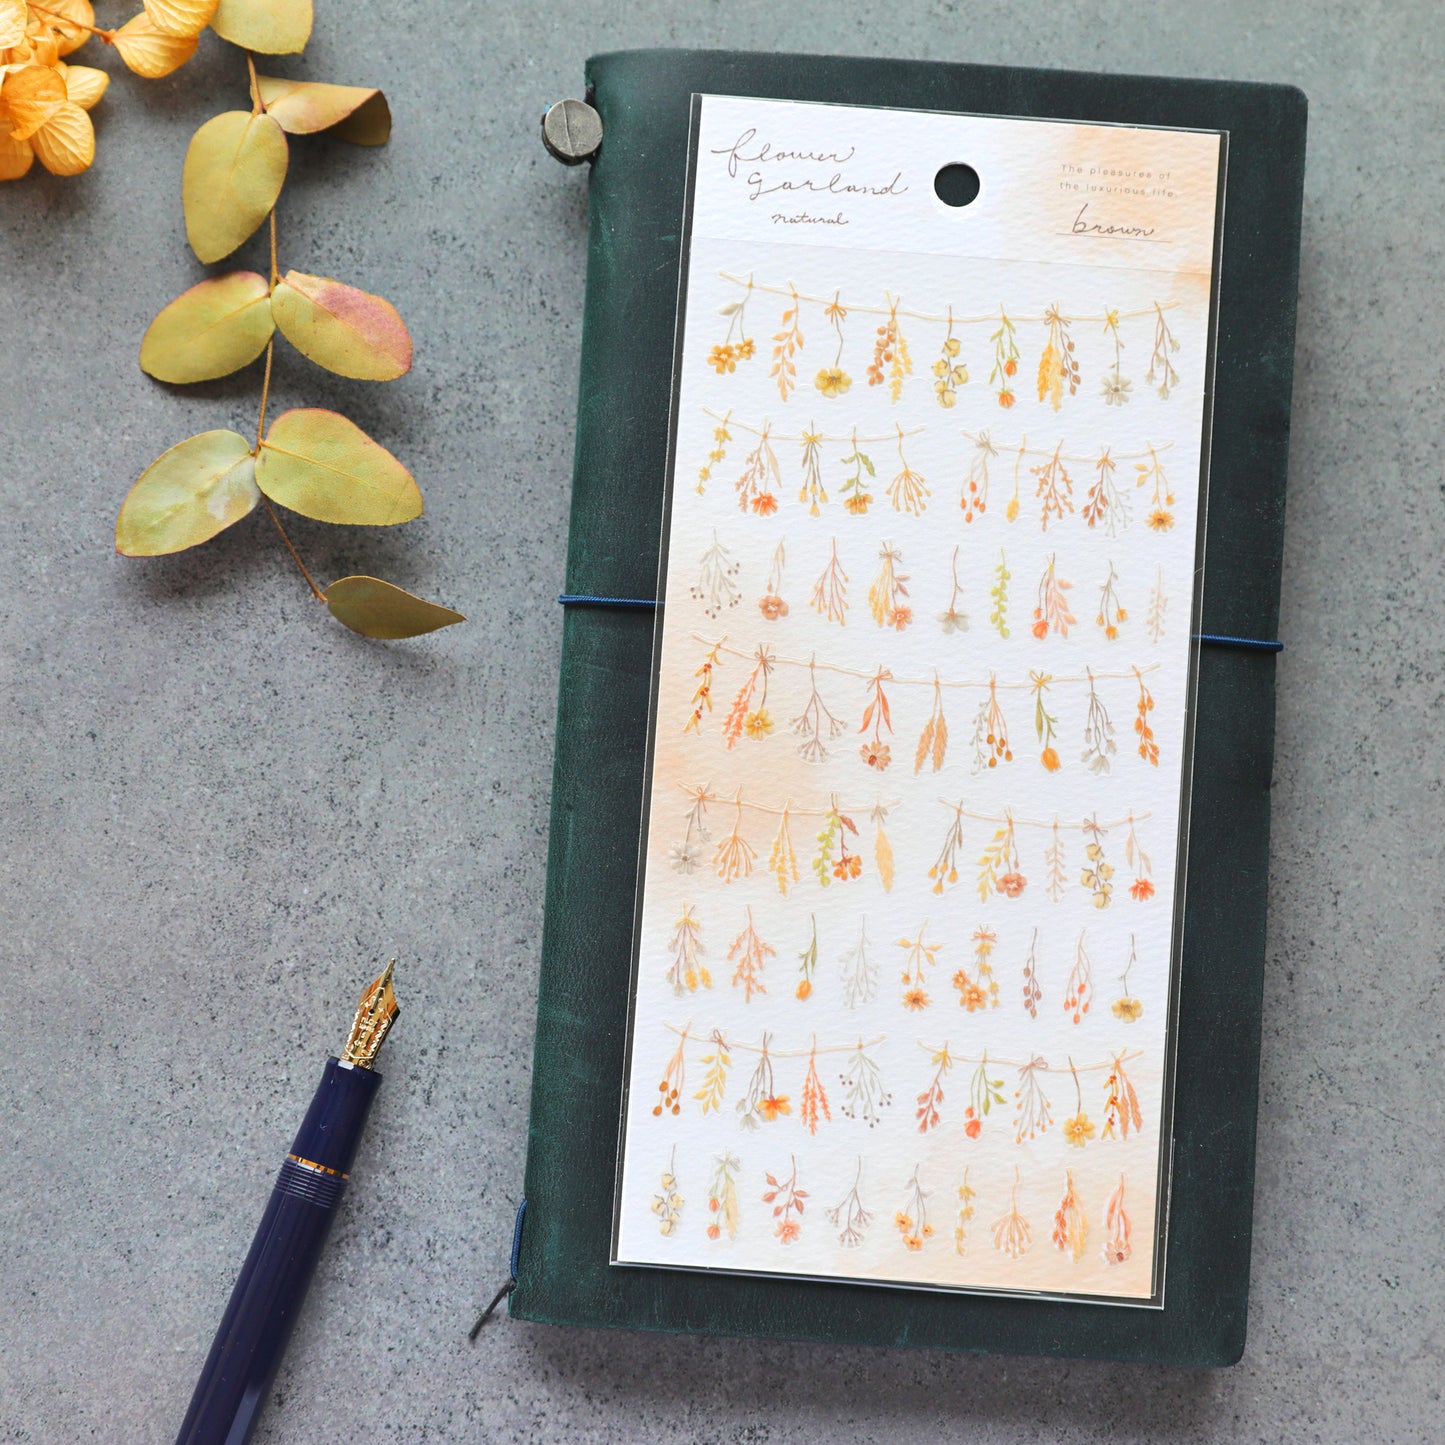 flower
garland
natural
The pleasures of
the luxurious life.
brown